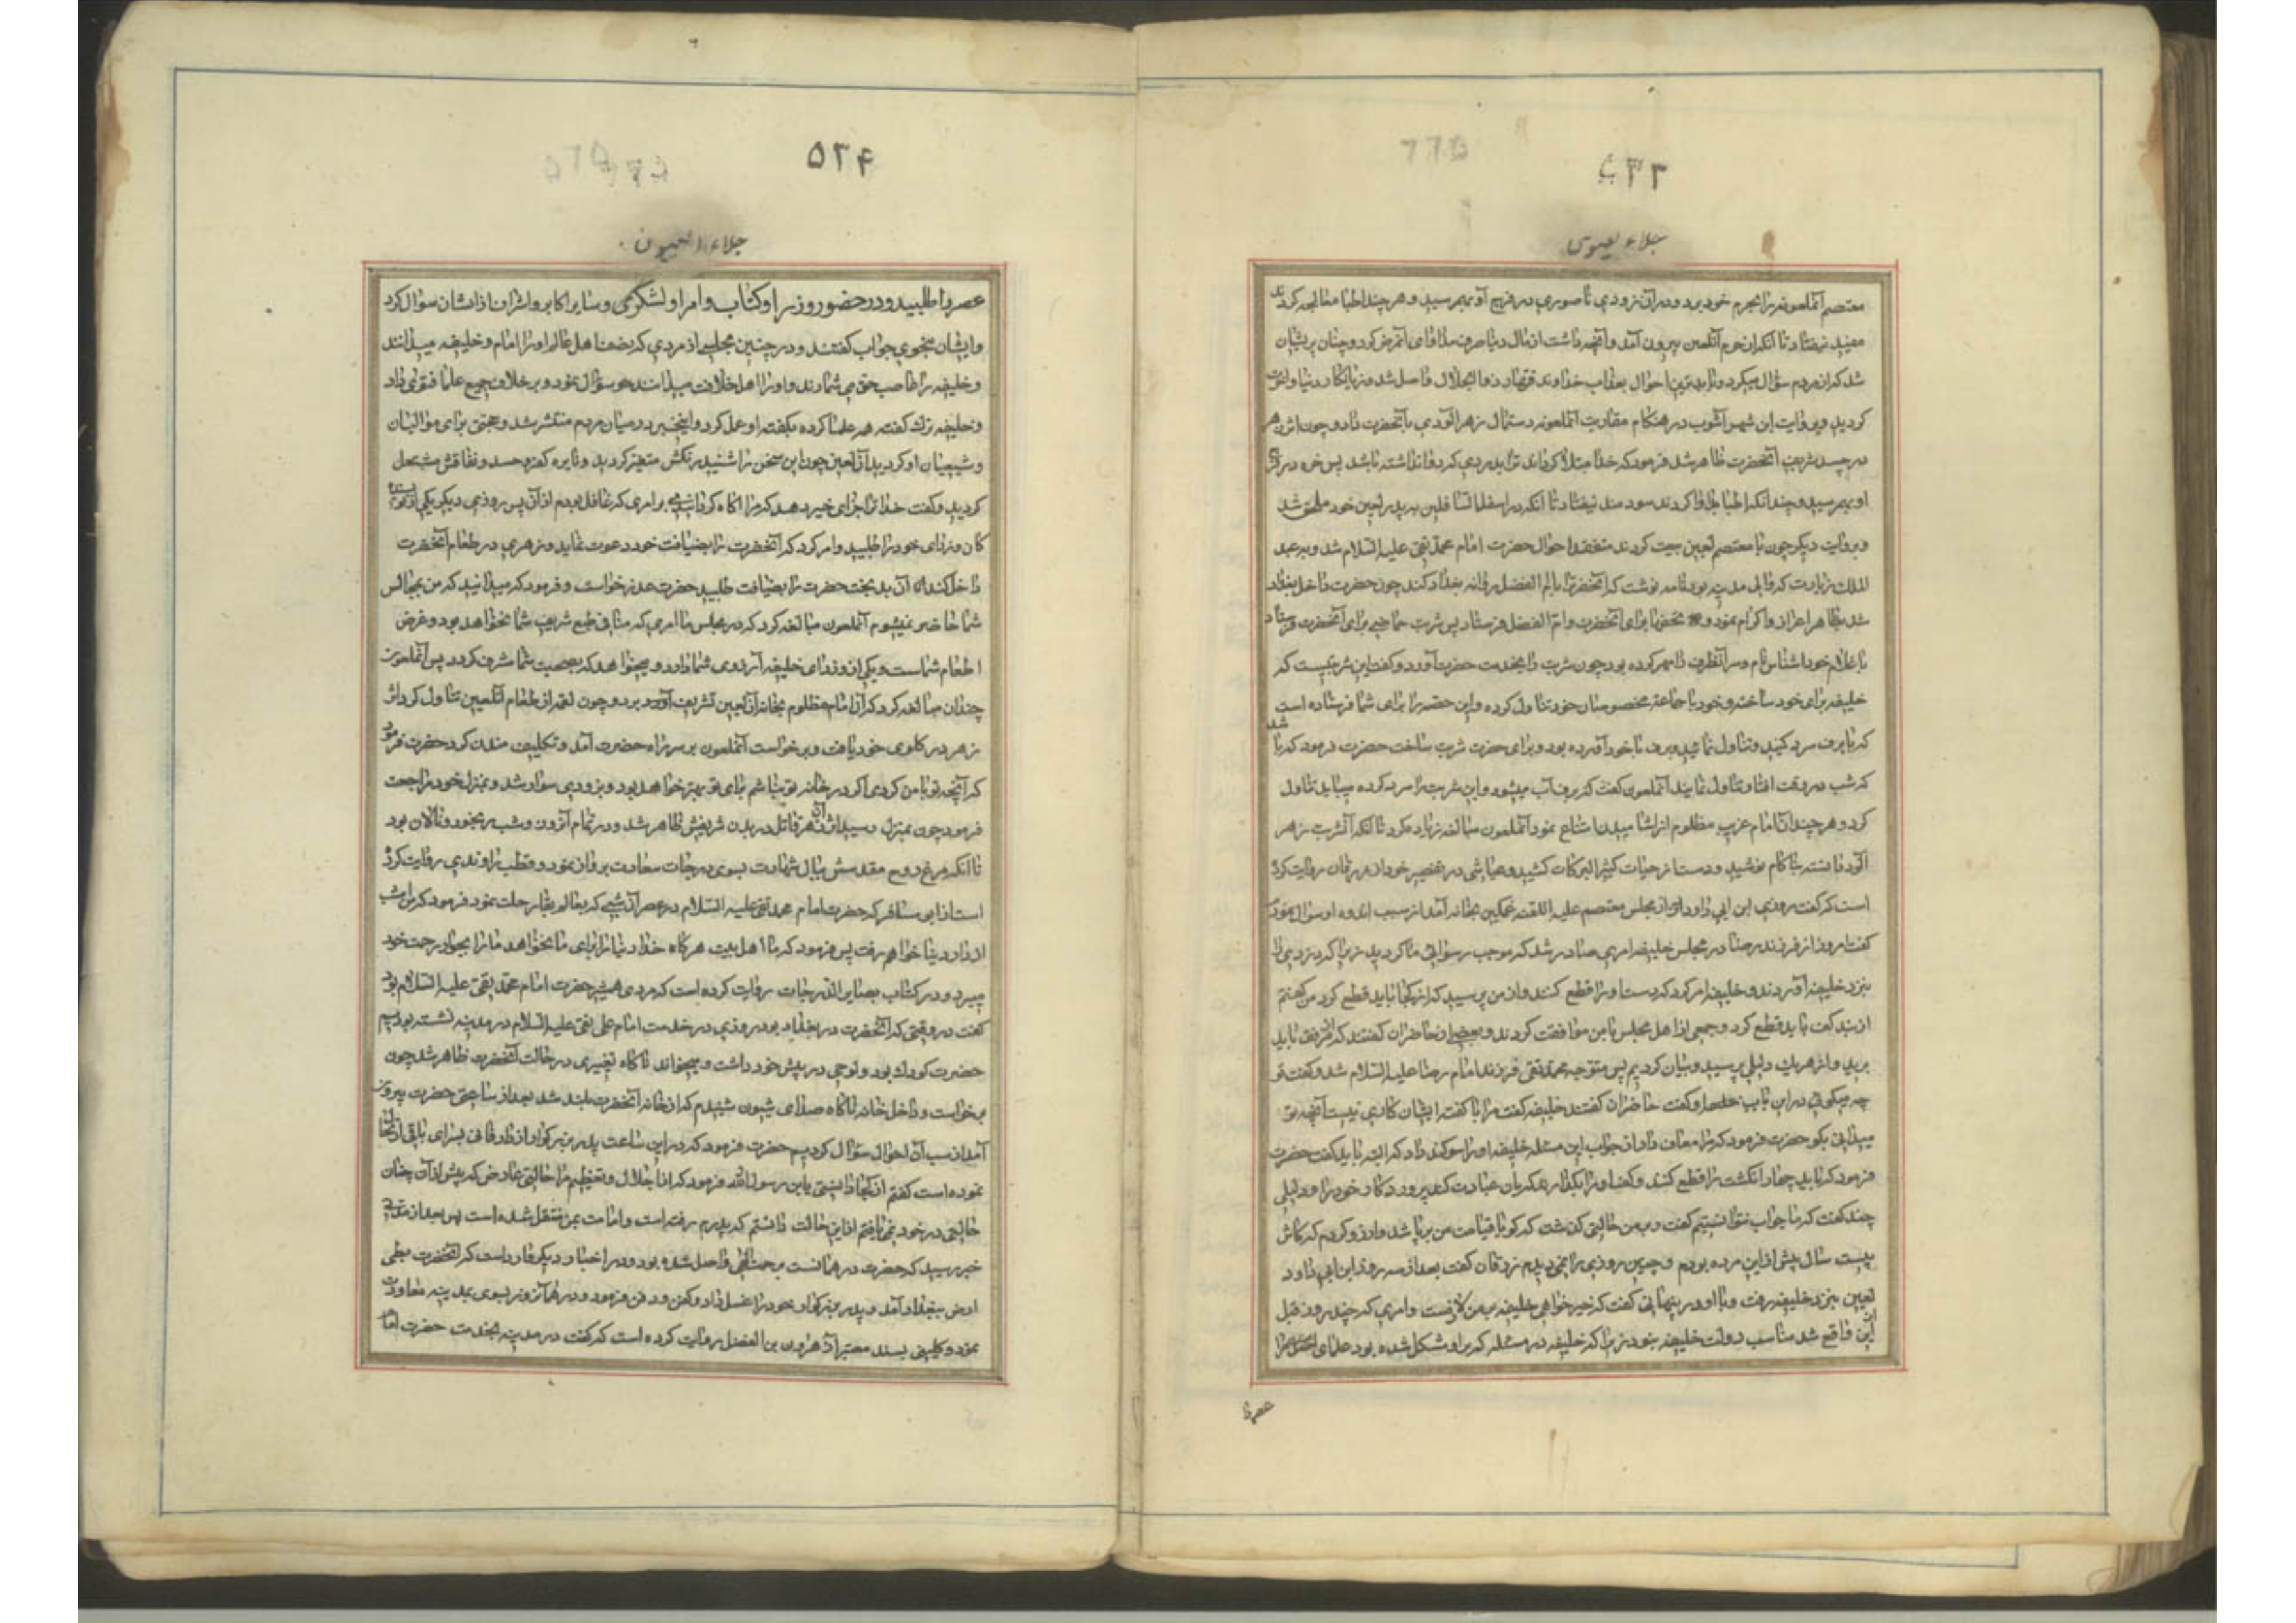 ۵۲۳
جلاء العیون
معتصم آنملعونه را بحرم خود برد و در آن زودی ناصوری در فرج او بهمرسید و هر چند اطبا معالجه کردند
مفید نیفتاد تا آنکه از حرم آنلعین بیرون آمد و آنچه داشت از مال دنیا صرف مداوای آنمرض کرد و چنان پریشان
شد که از مردم سؤال میکرد و با بدترین احوال بعذاب خداوند قهار ذو الجلال واصل شد و زیانکار دنیا و آخرت
کردید و بروایت ابن شهر آشوب در هنکام مقاربت آنملعونه دستمال زهر آلودی بآنحضرت داد و چون اثر زهر
در جسد شریف آنحضرت ظاهر شد فرمود که خدا مبتلا کرداند ترا بدردی که دوا نداشته باشد پس خوره در فرج
او بهمرسید و چندانکه اطبا مداوا کردند سودمند نیفتاد تا آنکه در اسفل السافلین به پدر لعین خود ملحق شد
و بروایت دیکر چون با معتصم لعین بیعت کردند متفقد احوال حضرت امام محمد تقی علیه السلام شد و بعبد
الملک زیات که والی مدینه بود نامه نوشت که آنحضرترا با ام الفضل روانه بغداد کند چون حضرت داخل بغداد
شد بظاهر اعزاز و اکرام نمود و تحفها برای آنحضرت و ام الفضل فرستاد پس شربت حماضی برای آنحضرت فرستاد
با غلام خود اشناس نام و سر آنظرف را مهر کرده بود چون شربت را بخدمت حضرت آورد و کفت این شربتیست که
خلیفه برای خود ساخته و خود با جماعة مخصوصان خود تناول کرده و این حصه را برای شما فرستاده است
که با برف سرد کنید و تناول نمائید و برف با خود آورده بود و برای حضرت شربت ساخت حضرت فرمود که باشد
که شب در وقت افطار تناول نمایند آنملعون کفت که برف آب میشود و این شربت را سرد کرده میباید تناول
کرد و هر چند آن امام غریب مظلوم از اشامیدن امتناع نمود آنملعون مبالغه زیاده کرد تا آنکه آنشربت زهر
آلود دانسته بناکام نوشید و دست از حیات کثیر البرکات کشید و عیاشی در تفسیر خود از زرقان روایت کرده
است که کفت روزی ابن ابی داود از مجلس معتصم علیه اللعنه غمکین بخانه آمد از سبب اندوه او سؤال نمودم
کفت امروز از فرزند رضا در مجلس خلیفه امری صادر شد که موجب رسوائی ما کردید زیرا که دزدی را
بنزد خلیفه آوردند و خلیفه امر کرد که دست او را قطع کنند و از من پرسید که از کجا باید قطع کرد من کفتم
از بند کف باید قطع کرد و جمعی از اهل مجلس با من موافقت کردند و بعضی از حاضران کفتند که از مرفق باید
برید و از هر یک دلیل پرسید و بیان کردیم پس متوجه محمد تقی فرزند امام رضا علیه السلام شد و کفت تو
چه میکوئی در این باب او کفت حاضران کفتند خلیفه کفت مرا با کفته ایشان کاری نیست آنچه تو
میدانی بکو حضرت فرمود که مرا معاف دار از جواب این مسئله خلیفه او را سوکند داد که البته باید کفت حضرت
فرمود که باید چهار انکشت را قطع کنند و کف او را بکذارند که بان عبادت کند پروردکار خود را و دلیلی
چند کفت که ما جواب نتوانستیم کفت و بر من حالتی کذشت که کویا قیامت من بر پا شد و ارزو کردم که کاش
بیست سال پیش از این مرده بودم و چنین روزی را نمی دیدم زرقان کفت بعد از سه روز ابن ابی داود
لعین بنزد خلیفه رفت و با او در پنهانی کفت که خیرخواهی خلیفه بر من لازمست و امری که چند روز قبل
از این واقع شد مناسب دولت خلیفه نبود زیرا که خلیفه در مسئله که بر او مشکل شده بود علمای
عصر را
۵۲۴
جلاء العیون
عصر را طلبید و در حضور وزرا و کتاب و امرا و لشکری و سایر اکابر و اشراف از ایشان سؤال کرد
و ایشان بنحوی جواب کفتند و در چنین مجلسی از مردی که نصف اهل عالم او را امام و خلیفه میدانند
و خلیفه را غاصب حق می شمارند و او را اهل خلافت میدانند سؤال نمود و بر خلاف جمیع علما فتوی داد
و خلیفه ترک کفته همه علما کرده بکفته او عمل کرد و اینخبر در میان مردم منتشر شد و حجتی برای موالیان
و شیعیان او کردید آن لعین چون این سخن را شنید رنکش متغیر کردید و نایره کفر و حسد و نفاقش مشتعل
کردید و کفت خدا ترا جزای خیر دهد که مرا آکاه کردانیدی بر امری که غافل بودم از آن پس روزی دیکر یکی از نویسنده
کان وزرای خود را طلبید و امر کرد که آنحضرت را بضیافت خود دعوت نماید و زهری در طعام آنحضرت
داخل کند آن بدبخت حضرت را بضیافت طلبید حضرت عذر خواست و فرمود که میدانید که من بمجالس
شما حاضر نمیشوم آنملعون مبالغه کرد که در مجلس ما امری که منافی طبع شریف شما نخواهد بود و غرض
اطعام شماست و یکی از وزرای خلیفه آرزوی شما دارد و میخواهد که بصحبت شما مشرف کردد پس آنملعون
چندان مبالغه کرد که آن امام مظلوم بخانه آن لعین تشریف برد و چون لقمه از طعام آنلعین تناول کرد اثر
زهر در کلوی خود یافت و برخواست آنملعون بر سر راه حضرت آمد و تکلیف ماندن کرد حضرت فرمود
که آنچه تو با من کردی اکر در خانه تو نباشم برای تو بهتر خواهد بود و بزودی سوار شد و بمنزل خود مراجعت
فرمود چون بمنزل رسید اثر آن زهر قاتل در بدن شریفش ظاهر شد و در تمام آنروز و شب رنجور و نالان بود
تا آنکه مرغ روح مقدسش ببال شهادت بسوی درجات سعادت پرواز نمود و قطب راوندی روایت کرده
است از ابی مسافر که حضرت امام محمد تقی علیه السلام در عصر آن شبی که بعالم بقا رحلت نمود فرمود که من امشب
از دار دنیا خواهم رفت پس فرمود که ما اهل بیت هرکاه خدا دنیا را برای ما نخواهد ما را بجوار رحمت خود
میبرد و در کتاب بصایر الدرجات روایت کرده است که مردی همیشه حضرت امام محمد تقی علیه السلام بود
کفت در وقتی که آنحضرت در بغداد بود روزی در خدمت امام علی نقی علیه السلام در مدینه نشسته بودیم
حضرت کودک بود و لوحی در پیش خود داشت و میخواند ناکاه تغییری در حالت آنحضرت ظاهر شد چون
برخواست و داخل خانه ناکاه صدای شیون شنیدم که از خانه آنحضرت بلند شد بعد از ساعتی حضرت بیرون
آمد از سبب آن احوال سؤال کردیم حضرت فرمود که در این ساعت پدر بزرکوار از دار فانی بسرای باقی ارتحال
نموده است کفتم از کجا دانستی یابن رسول الله فرمود که از اجلال و تعظیم مرا حالتی عارض که پیش از آن چنان
حالتی در خود نمی یافتم از این حالت دانستم که پدرم رفته است و امامت بمن منتقل شده است پس بعد از مدتی
خبر رسید که حضرت در همانست برحمت الهی واصل شده بود و در اخبار دیکر وارد است که آنحضرت بطی
ارض ببغداد آمد و پدر بزرکوار خود را غسل داد و کفن و دفن فرمود و در همان روز بسوی مدینه معاودت
نمود و کلینی بسند معتبر از هرون بن الفضل روایت کرده است که کفت در مدینه بخدمت حضرت اما